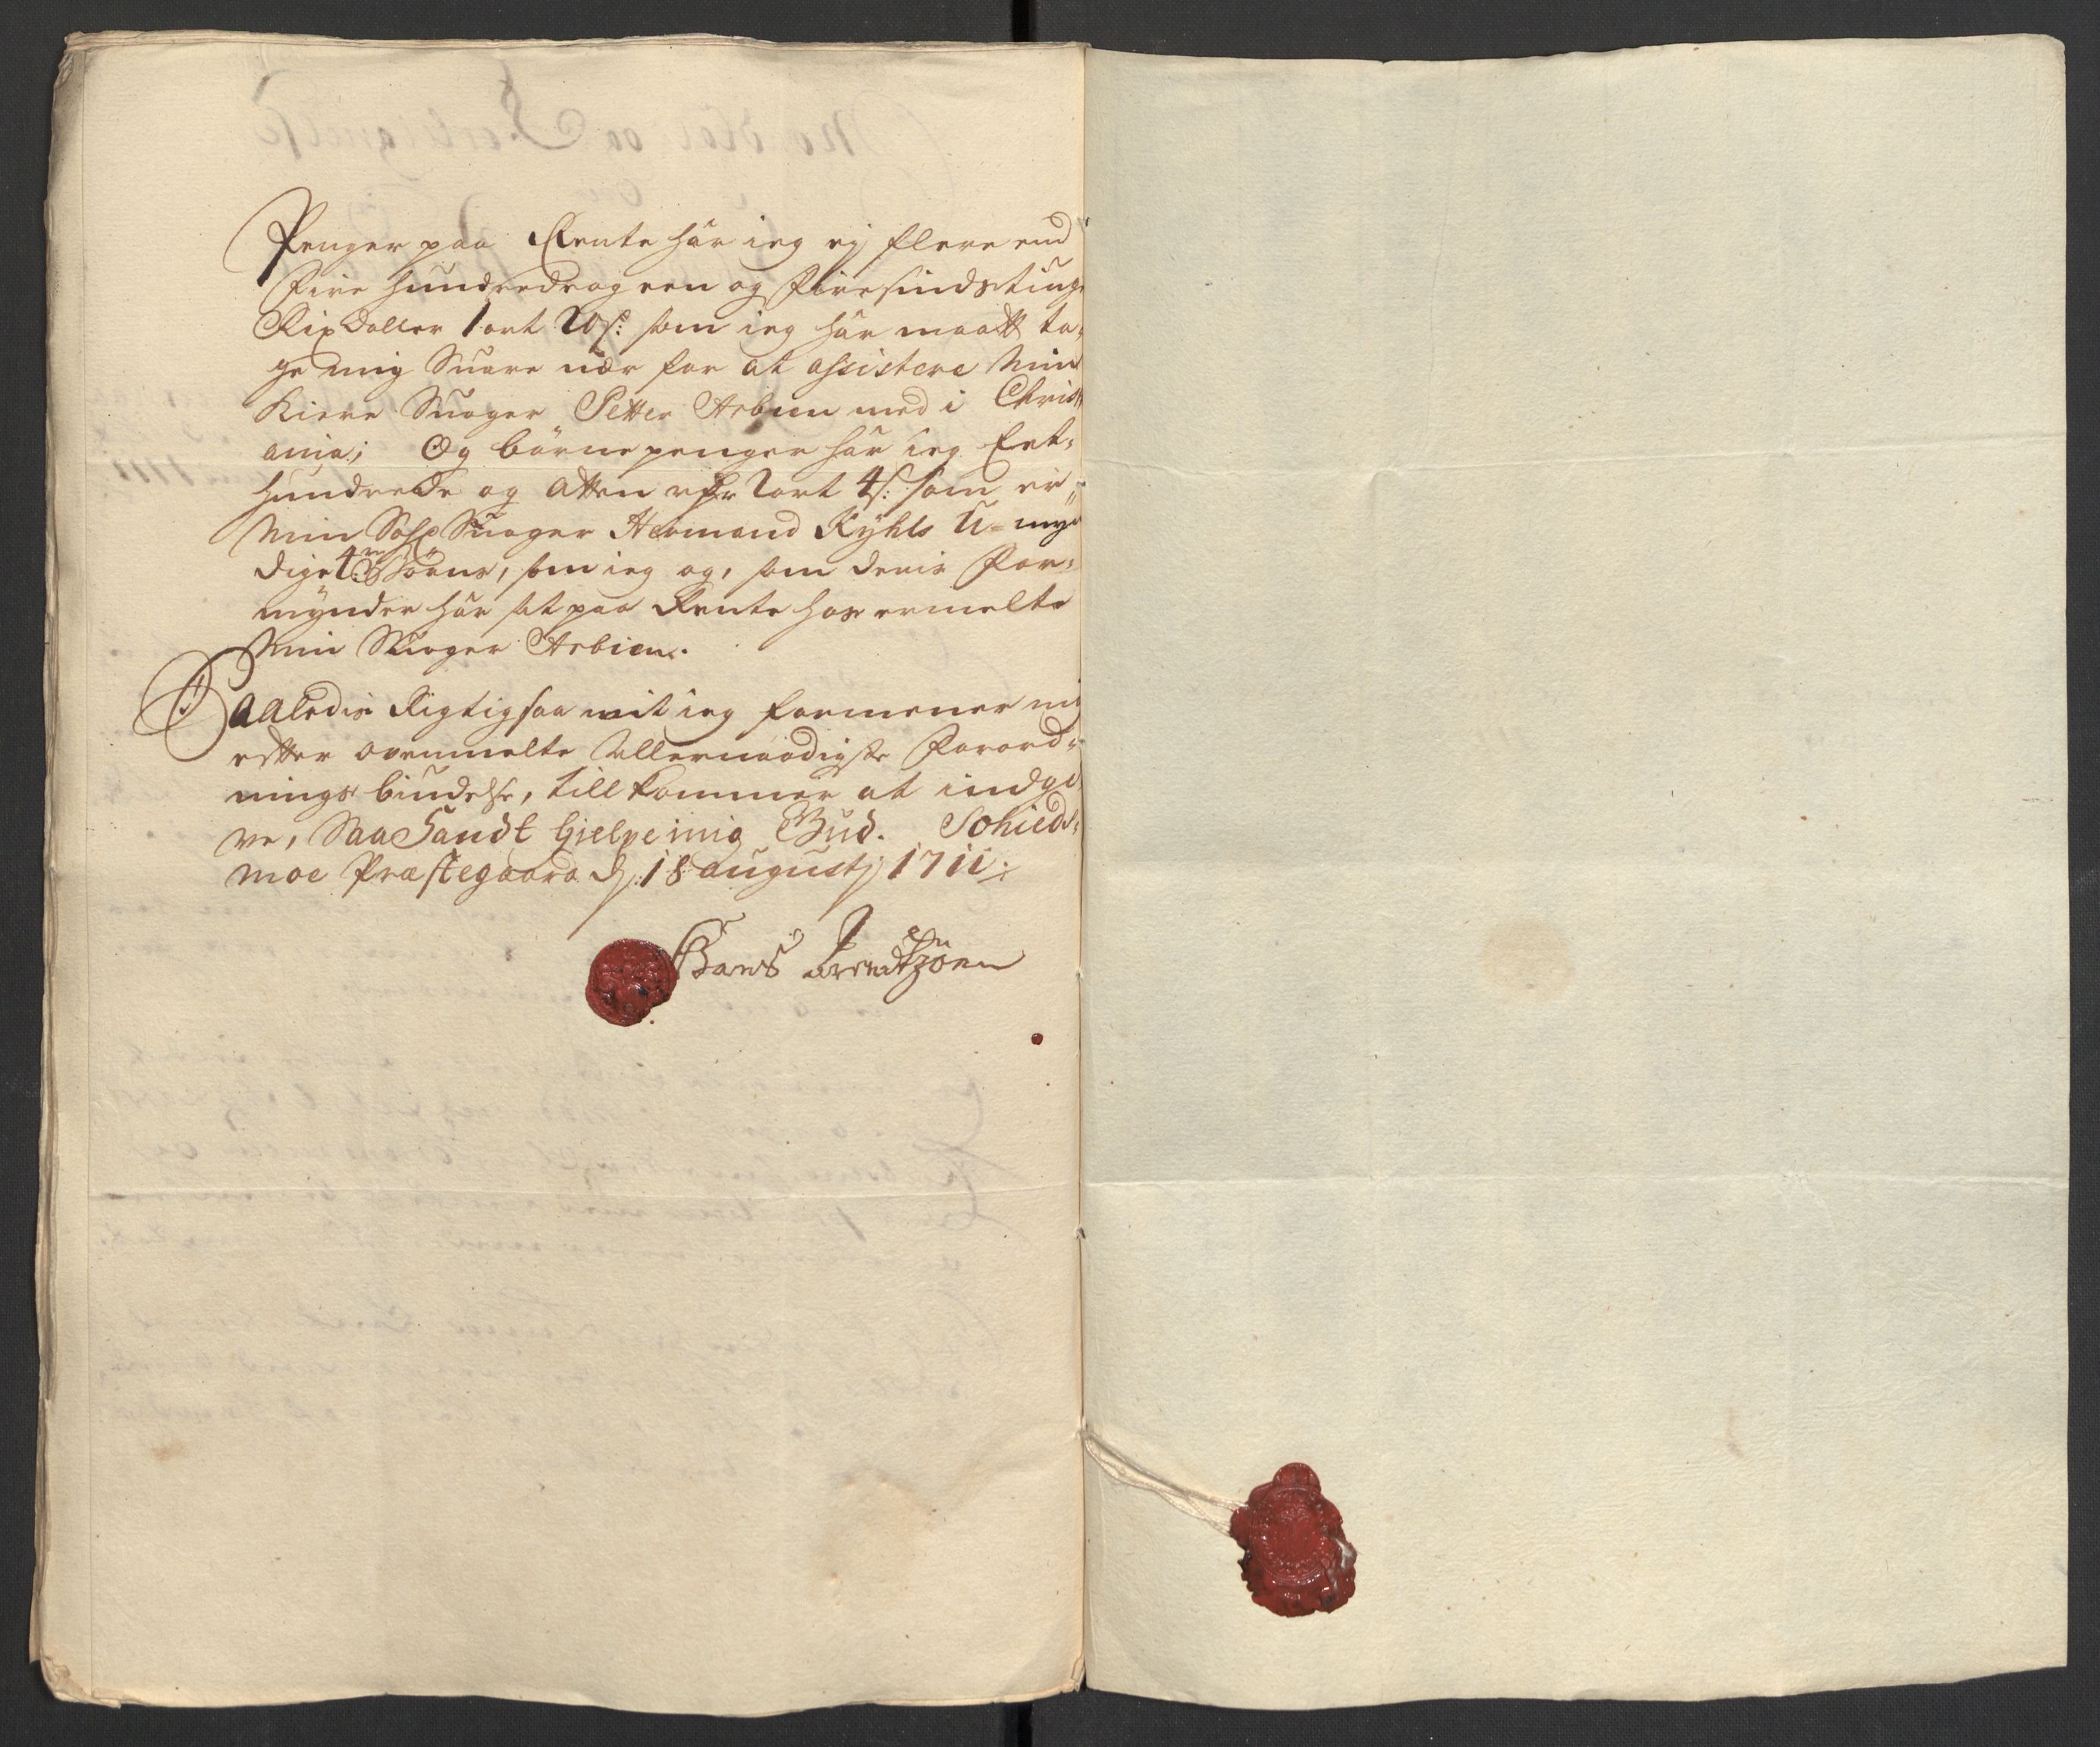 Penger paa Rente har ieg ej flere end
Fire hundrede og een og Fiiresindstiuge
Rix Daller 1 ort 20 s: som ieg har maatt ta-
ge mig Suare nær for at assistere Min
Kiere Suoger Petter Arbien med i Christi
ania; Og börnepenger har ieg Eet-
hundrede og Atten rdr 2 ort 4 s: som er
Min Sal Suoger Hermand Kyhls U-myn
dige 4re Börns, som ieg og, som deris For-
mynder har sat paa Rente hos ermelte
Min Suoger Arbien.
Saaledis Rigtig saa vit ieg formener mig
efter ovenmelte Allernaadigste Forord-
nings bindelse, till kommer at indgi-
ve, Saa Sandt hielpe mig Gud. Schieds-
moe Præstegaard d: 18 augustj 1711
Hans Arentzön